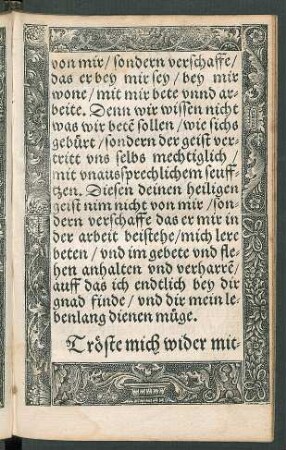 von mir / sondern verschaffe /
das er bey mir sey / bey mir
wone / mit mir bete vnnd ar-
beite. Denn wir wissen nicht
was wir betē sollen / wie sichs
gebürt / sondern der geist ver-
tritt vns selbs mechtiglich /
mit vnaussprechlichem seuff-
tzen. Diesen deinen heiligen
geist nim nicht von mir / son-
dern verschaffe das er mir in
der arbeit beistehe / mich lere
beten / vnd im gebete vnd fle-
hen anhalten vnd verharrē /
auff das ich endtlich bey dir
gnad finde / vnd dir mein le-
benlang dienen müge.
Tröste mich wider mit-